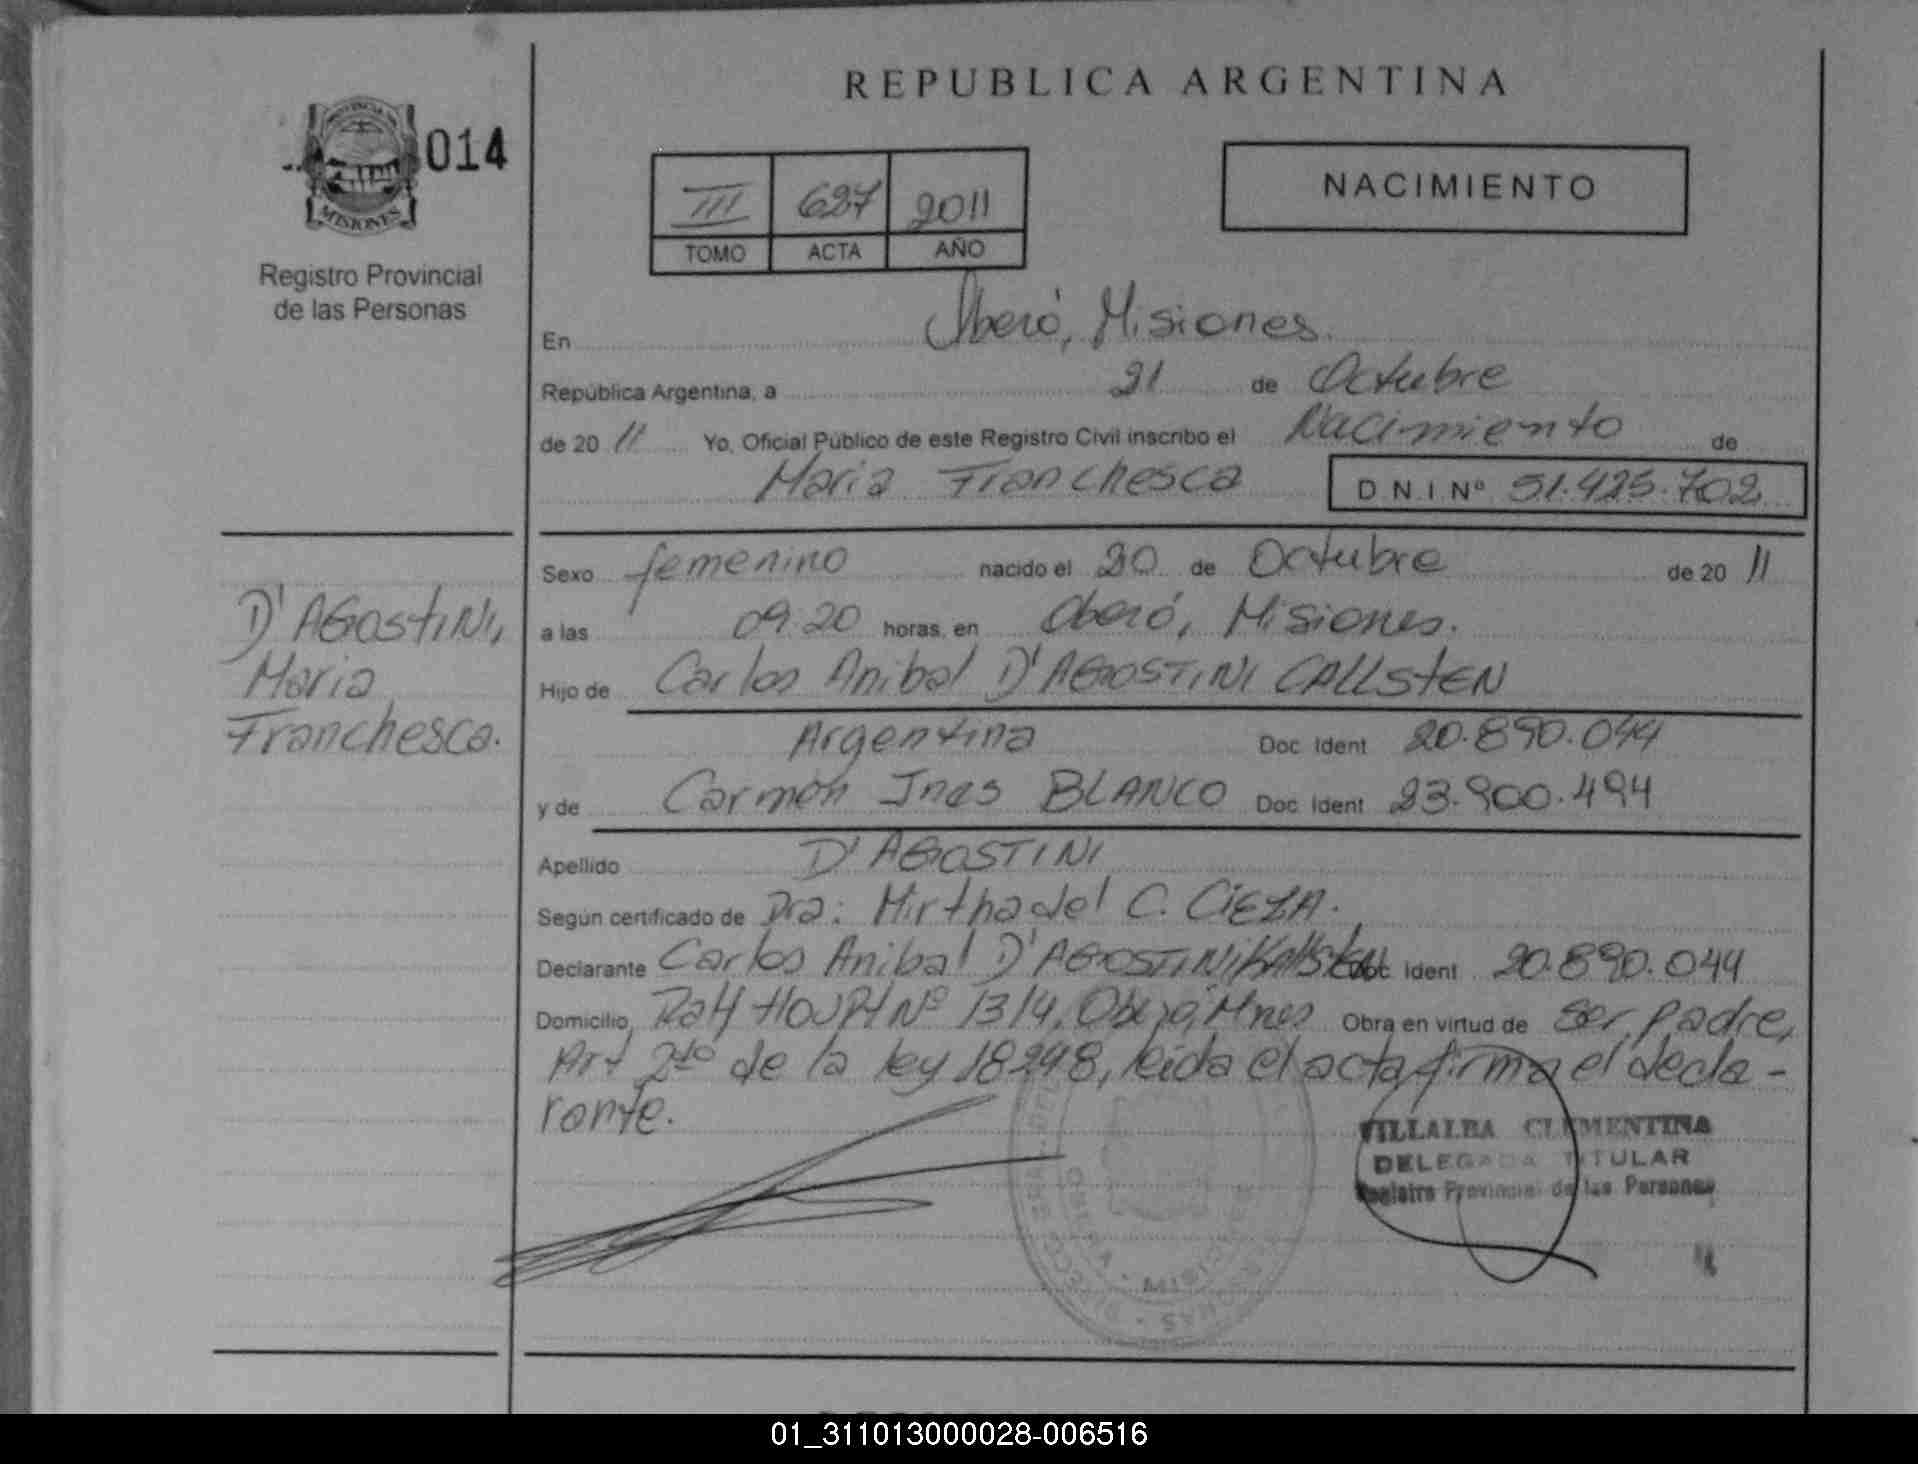 REPUBLICA ARGENTINA
PROVINCIA DE
MISIONES
014
Registro Provincial
de las Personas
III 687 2011
TOMO ACTA AÑO
NACIMIENTO
En Oberó, Misiones.
República Argentina, a 21 de Octubre
de 20 11 Yo, Oficial Público de este Registro Civil inscribo el Nacimiento de
Maria Franchesca D.N.I Nº 51.425.702
D'AGOSTINI,
Maria
Franchesca.
Sexo femenino nacido el 20 de Octubre de 20 11
a las 09:20 horas, en Oberó, Misiones.
Hijo de Carlos Anibal D'AGOSTINI CALLSTEN
Argentina Doc Ident 20.890.044
y de Carmen Ines BLANCO Doc Ident 23.900.494
Apellido D'AGOSTINI
Según certificado de Dra: Mirtha del C. CIEZA.
Declarante Carlos Anibal D'AGOSTINI KALLSTEN Doc Ident 20.890.044
Domicilio Nº 1314, Oberó, Mnes Obra en virtud de Ser Padre,
Art 2do de la ley 18248, leida el acta firma el decla-
rante.
VILLALBA CLEMENTINA
DELEGADA TITULAR
Registro Provincial de las Personas
OBERA - MISIONES
01_311013000028-006516